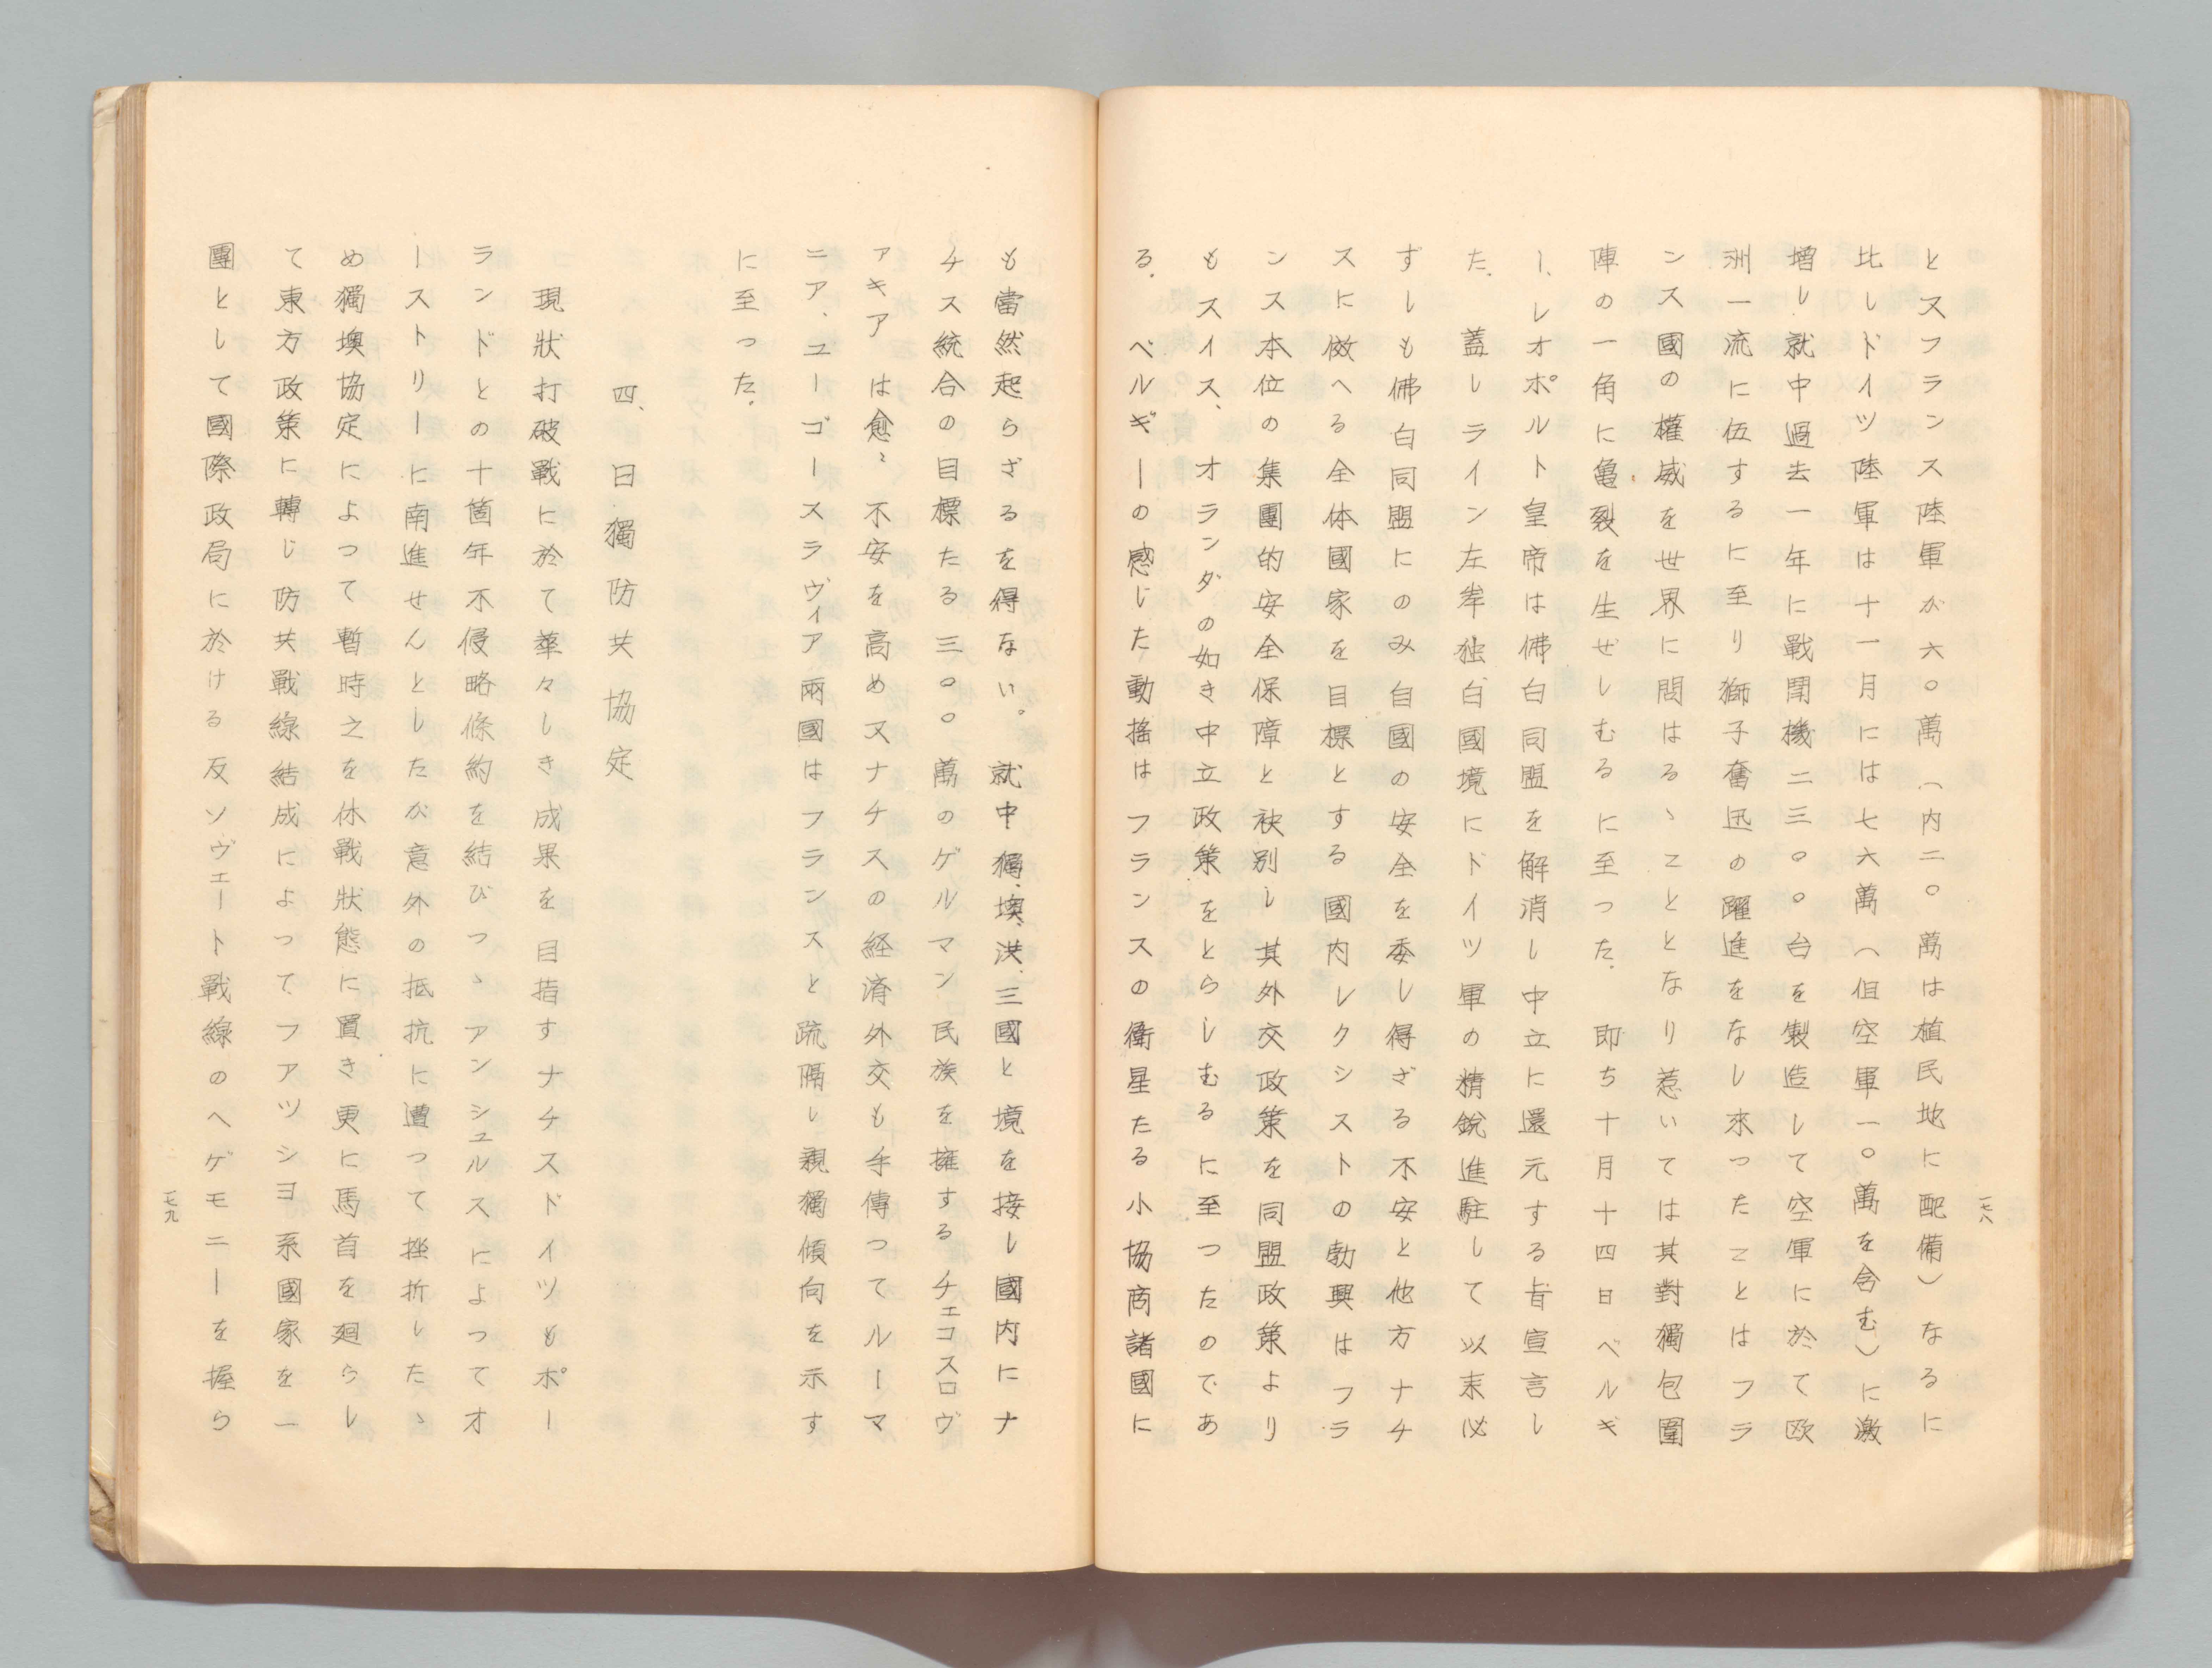 一七八
とスフランス陸軍が六〇萬（内二〇萬は植民地に配備）なるに
比しドイツ陸軍は十一月には七六萬（但空軍一〇萬を含む）に激
増し就中過去一年に戰鬪機二三〇〇台を製造して空軍に於て欧
洲一流に伍するに至り獅子奮迅の躍進をなし來つたことはフラ
ンス國の權威を世界に問はるゝこととなり惹いては其對獨包圍
陣の一角に亀裂を生ぜしむるに至つた．即ち十月十四日ベルギ
ー、レオポルト皇帝は佛白同盟を解消し中立に還元する旨宣言し
た．蓋しライン左岸独白國境にドイツ軍の精銳進駐して以来必
ずしも佛白同盟にのみ自國の安全を委し得ざる不安と他方ナチ
スに倣へる全体國家を目標とする國内レクシストの勃興はフラ
ンス本位の集團的安全保障と袂別し其外交政策を同盟政策より
もスイス、オランダの如き中立政策をとらしむるに至つたのであ
る．ベルギーの感じた動揺はフランスの衛星たる小協商諸國に
も當然起らざるを得ない。就中獨、墺、洪、三國と境を接し國内にナ
チス統合の目標たる三〇〇萬のゲルマン民族を擁するチェコスロヴ
ァキアは愈〻不安を高め又ナチスの経済外交も手傳つてルーマ
ニア、ユーゴースラヴィア兩國はフランスと疏隔し親獨傾向を示す
に至つた．
四、日獨防共協定
現狀打破戰に於て華々しき成果を目指すナチスドイツもポー
ランドとの十箇年不侵略條約を結びつゝアンシュルスによつてオ
ーストリーに南進せんとしたが意外の抵抗に遭つて挫折したゝ
め獨墺協定によつて暫時之を休戰狀態に置き更に馬首を廻らし
て東方政策に轉じ防共戰線結成によつてファツシヨ系國家を一
團として國際政局に於ける反ソヴェート戰線のヘゲモニーを握ら
一七九